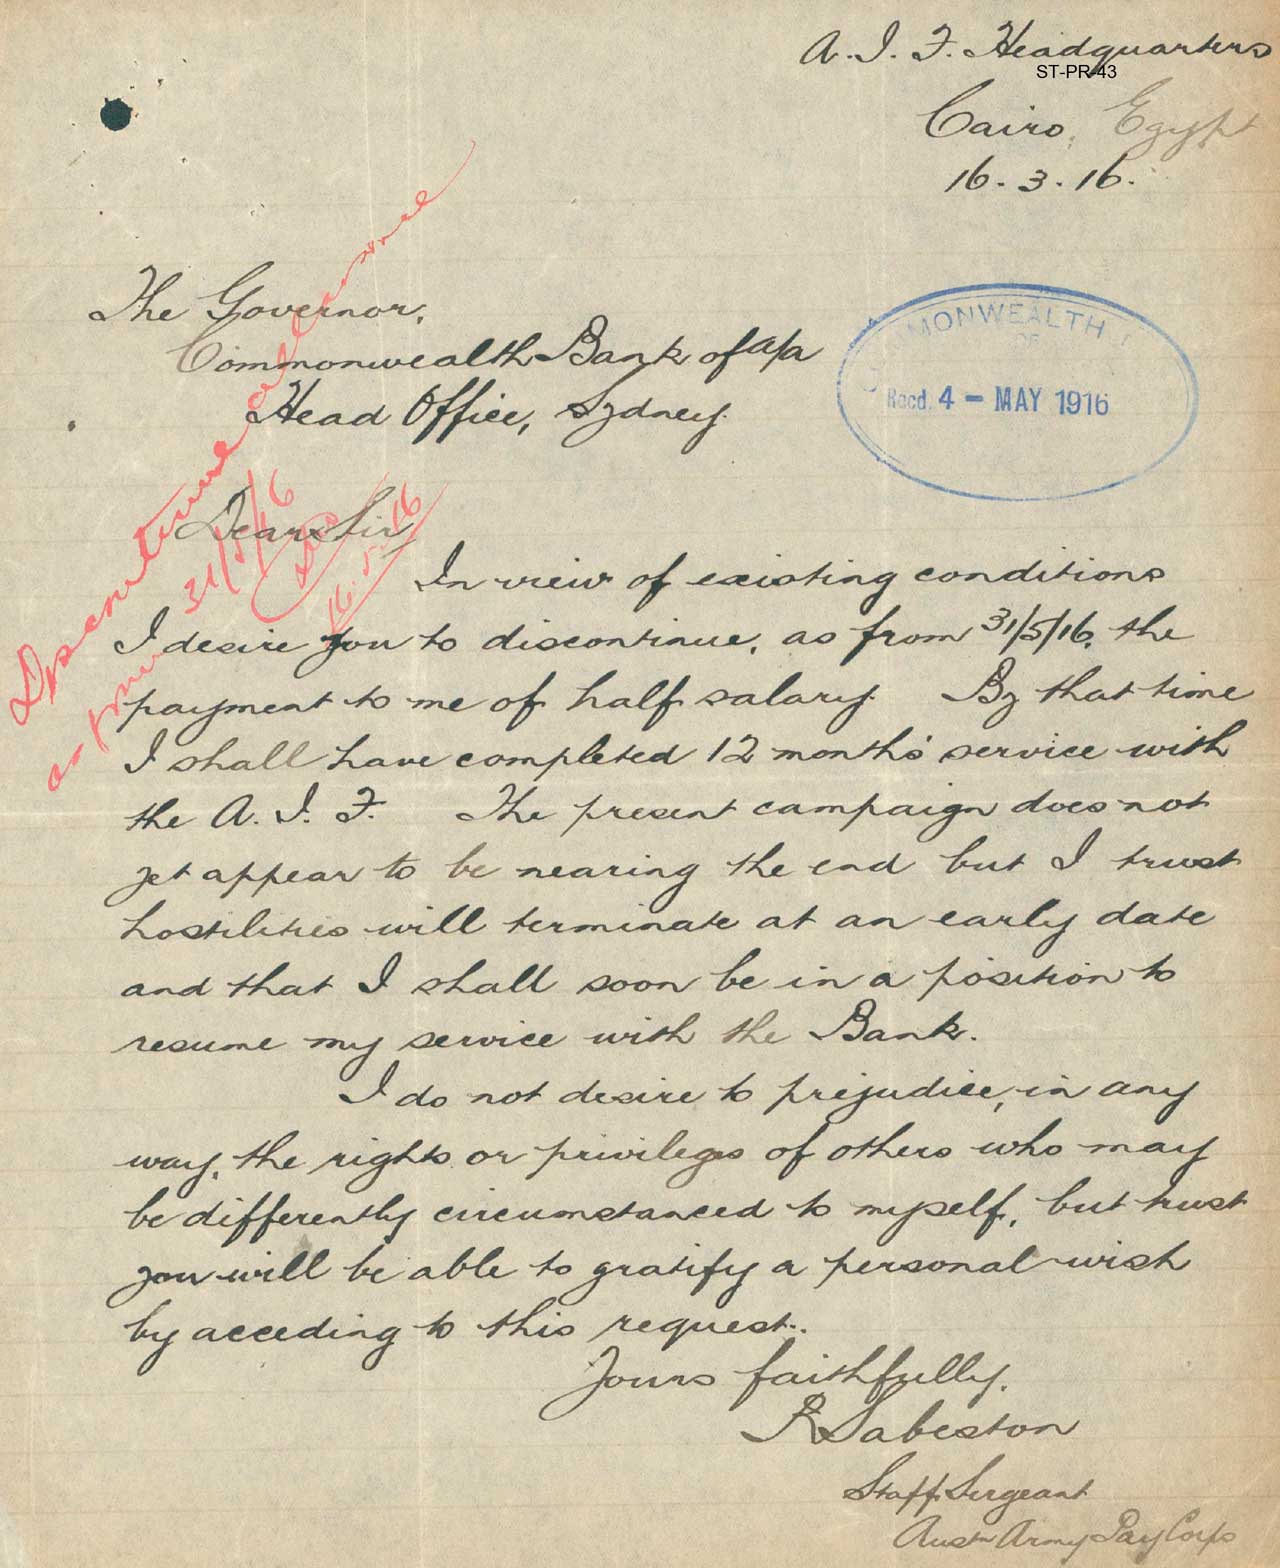 A. I. F. Headquarters
ST-PR-43
Cairo, Egypt
16. 3. 16.
The Governor,
Commonwealth Bank of a/a
Head Office, Sydney.
COMMONWEALTH
OF
Recd. 4 - MAY 1916
Discontinue allowance
on from 31/5/16
16.5.16
Dear Sir,
In view of existing conditions
I desire you to discontinue, as from 31/5/16, the
payment to me of half salary. By that time
I shall have completed 12 months' service with
the A. I. F. The present campaign does not
yet appear to be nearing the end but I trust
hostilities will terminate at an early date
and that I shall soon be in a position to
resume my service with the Bank.
I do not desire to prejudice, in any
way, the rights or privileges of others who may
be differently circumstanced to myself, but trust
you will be able to gratify a personal wish
by acceding to this request.
Yours faithfully,
R Sabeston
Staff Sergeant
Austn Army Pay Corps